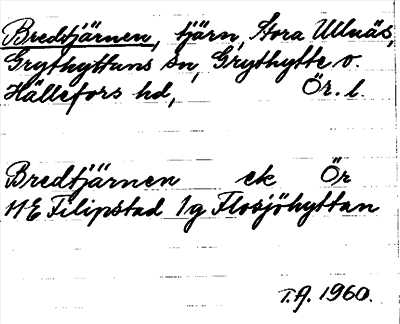 Bredtjärnen, tjärn, Stora Ullnäs,
Grythyttans sn, Grythytte o.
Hällefors hd, Ör. l.
Bredtjärnen ek Ör
11E Filipstad 1g Flosjöhyttan
T.A. 1960.